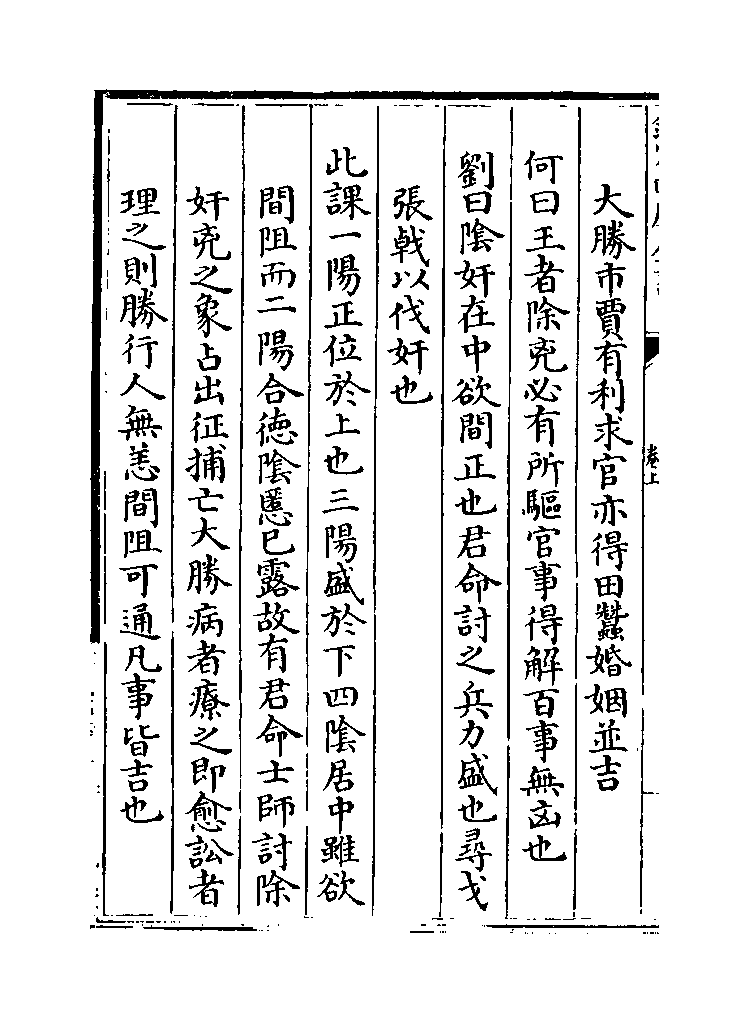 大勝市賈有利求官亦得田蠶婚姻並吉
何曰王者除兇必有所驅官事得解百事無凶也
劉曰陰奸在中欲間正也君命討之兵力盛也尋戈
張戟以伐奸也
此課一陽正位於上也三陽盛於下四陰居中雖欲
間阻而二陽合徳陰慝已露故有君命士師討除
奸兇之象占出征捕亡大勝病者療之即愈訟者
理之則勝行人無恙間阻可通凡事皆吉也
卷上